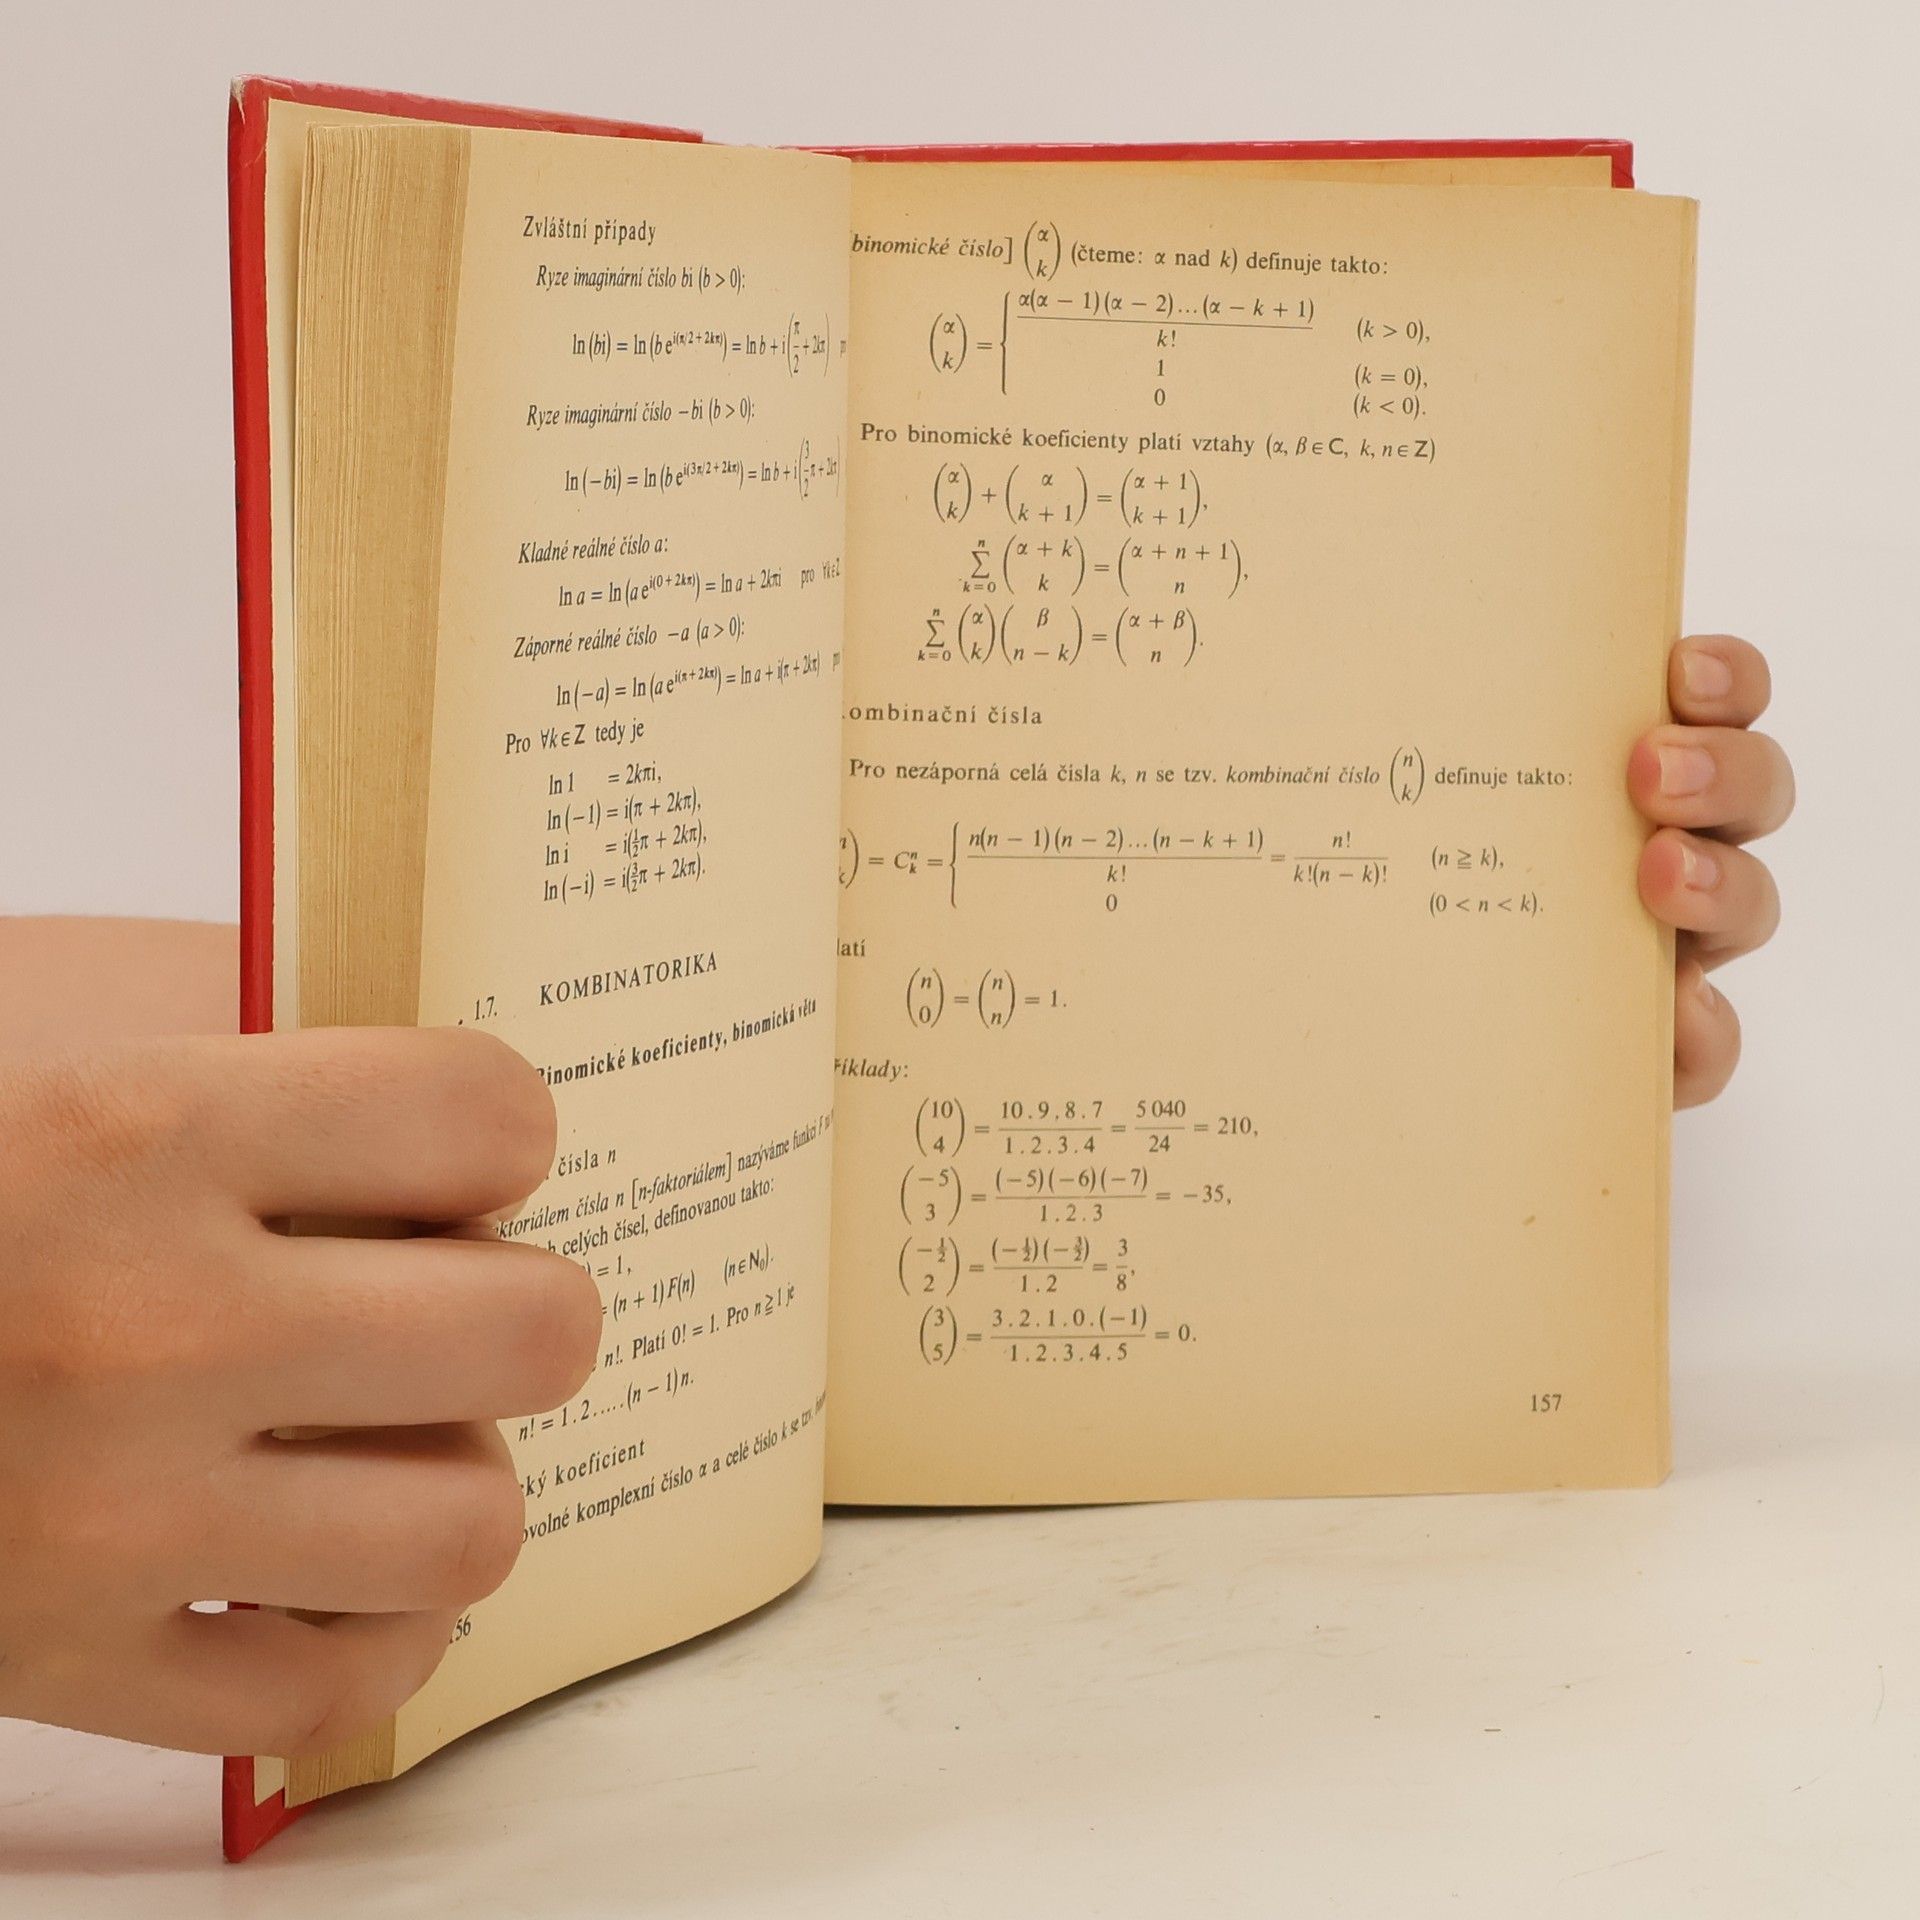 Zvláštní případy
Ryze imaginární číslo bi (b > 0):
ln (bi) = ln (b e^{i(π/2 + 2kπ)}) = ln b + i(π/2 + 2kπ)
Ryze imaginární číslo −bi (b > 0):
ln (−bi) = ln (b e^{i(3π/2 + 2kπ)}) = ln b + i(3/2 π + 2kπ
Kladné reálné číslo a:
ln a = ln (a e^{i(0 + 2kπ)}) = ln a + 2kπi pro ∀k∈Z
Záporné reálné číslo −a (a > 0):
ln (−a) = ln (a e^{i(π + 2kπ)}) = ln a + i(π + 2kπ)
Pro ∀k∈Z tedy je
ln 1 = 2kπi,
ln (−1) = i(π + 2kπ),
ln i = i(½π + 2kπ),
ln (−i) = i(3/2 π + 2kπ).
1.7. KOMBINATORIKA
Binomické koeficienty, binomická věta
čísla n
ktoriálem čísla n [n-faktoriálem] nazýváme funkci F
celých čísel, definovanou takto:
= 1,
= (n + 1) F(n) (n∈N₀).
n!. Platí 0! = 1. Pro n ≧ 1 je
n! = 1 . 2 . ... . (n − 1) n.
ký koeficient
ovolné komplexní číslo α a celé číslo k se tzv.
156
binomické číslo] (α k) (čteme: α nad k) definuje takto:
(α k) = { α(α − 1)(α − 2)...(α − k + 1) / k! (k > 0),
1 (k = 0),
0 (k < 0).
Pro binomické koeficienty platí vztahy (α, β∈C, k, n∈Z)
(α k) + (α k + 1) = (α + 1 k + 1),
∑_{k=0}^{n} (α + k k) = (α + n + 1 n),
∑_{k=0}^{n} (α k)(β n − k) = (α + β n).
ombinační čísla
Pro nezáporná celá čísla k, n se tzv. kombinační číslo (n k) definuje takto:
(n k) = C_k^n = { n(n − 1)(n − 2)...(n − k + 1) / k! = n! / k!(n − k)! (n ≧ k),
0 (0 < n < k).
latí
(n 0) = (n n) = 1.
říklady:
(10 4) = 10 . 9 . 8 . 7 / 1 . 2 . 3 . 4 = 5 040 / 24 = 210,
(−5 3) = (−5)(−6)(−7) / 1 . 2 . 3 = −35,
(−½ 2) = (−½)(−3/2) / 1 . 2 = 3/8,
(3 5) = 3 . 2 . 1 . 0 . (−1) / 1 . 2 . 3 . 4 . 5 = 0.
157